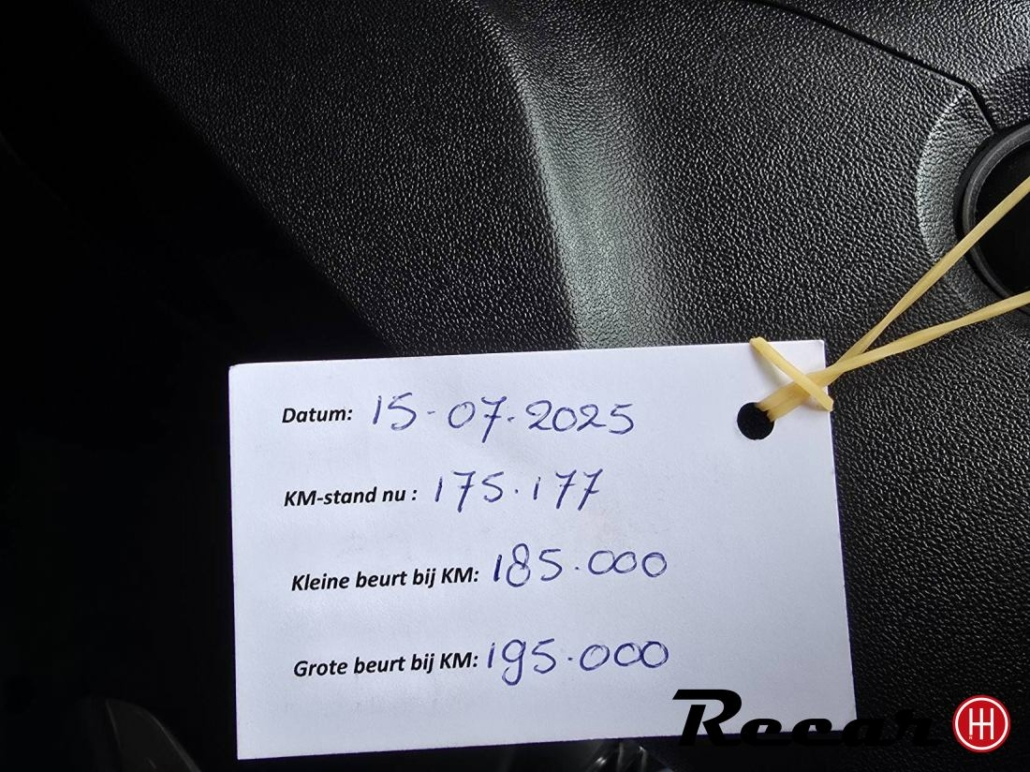 Datum: 15-07-2025
KM-stand nu : 175.177
Kleine beurt bij KM: 185.000
Grote beurt bij KM: 195.000
Recar H